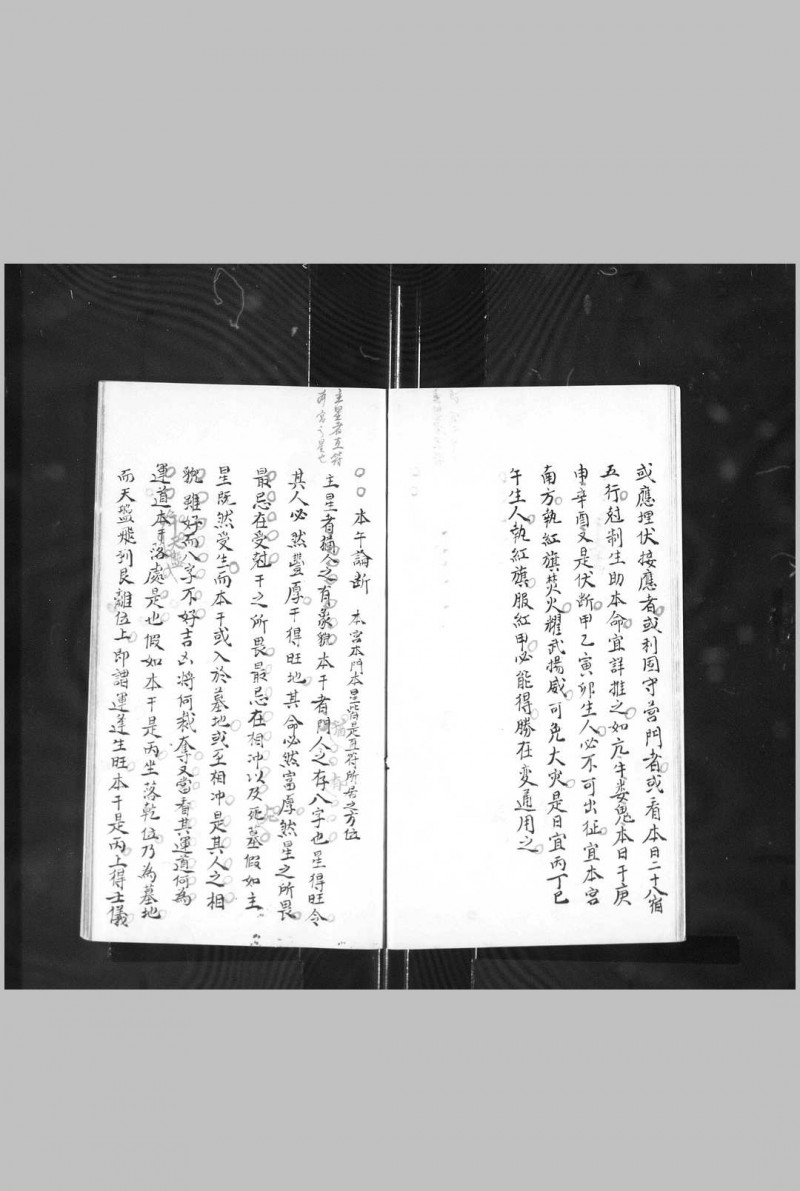 或應埋伏接應者或利固守營門者或看本日二十八宿
五行尅制生助本命宜詳推之如亢牛婁鬼本日干庚
申辛酉又是伏断甲乙寅卯生人必不可出征宜本宮
南方執紅旗焚火耀武揚威可免大灾是日宜丙丁巳
午生人執紅旗服紅甲必能得勝在変通用之
主星者直符
本宮之星也
本干論断 本宮本門本星皆是直符所居之方位
主星者猶人之有家貌本干者猶人之存八字也星得旺令
其人必然豐厚干得旺地其命必然富厚然星之所畏
最忌在受尅干之所畏最忌在相冲以及死墓假如主
星既然受生而本干或入於墓地或至相冲是其人之相
貌雖好而八字不好吉凶將何裁奪又當看其運道何為
運道本干落處是也假如本干是丙坐落乾位乃為墓地
而天盤飛到艮離位上即謂運逢生旺本干是丙上得士儀